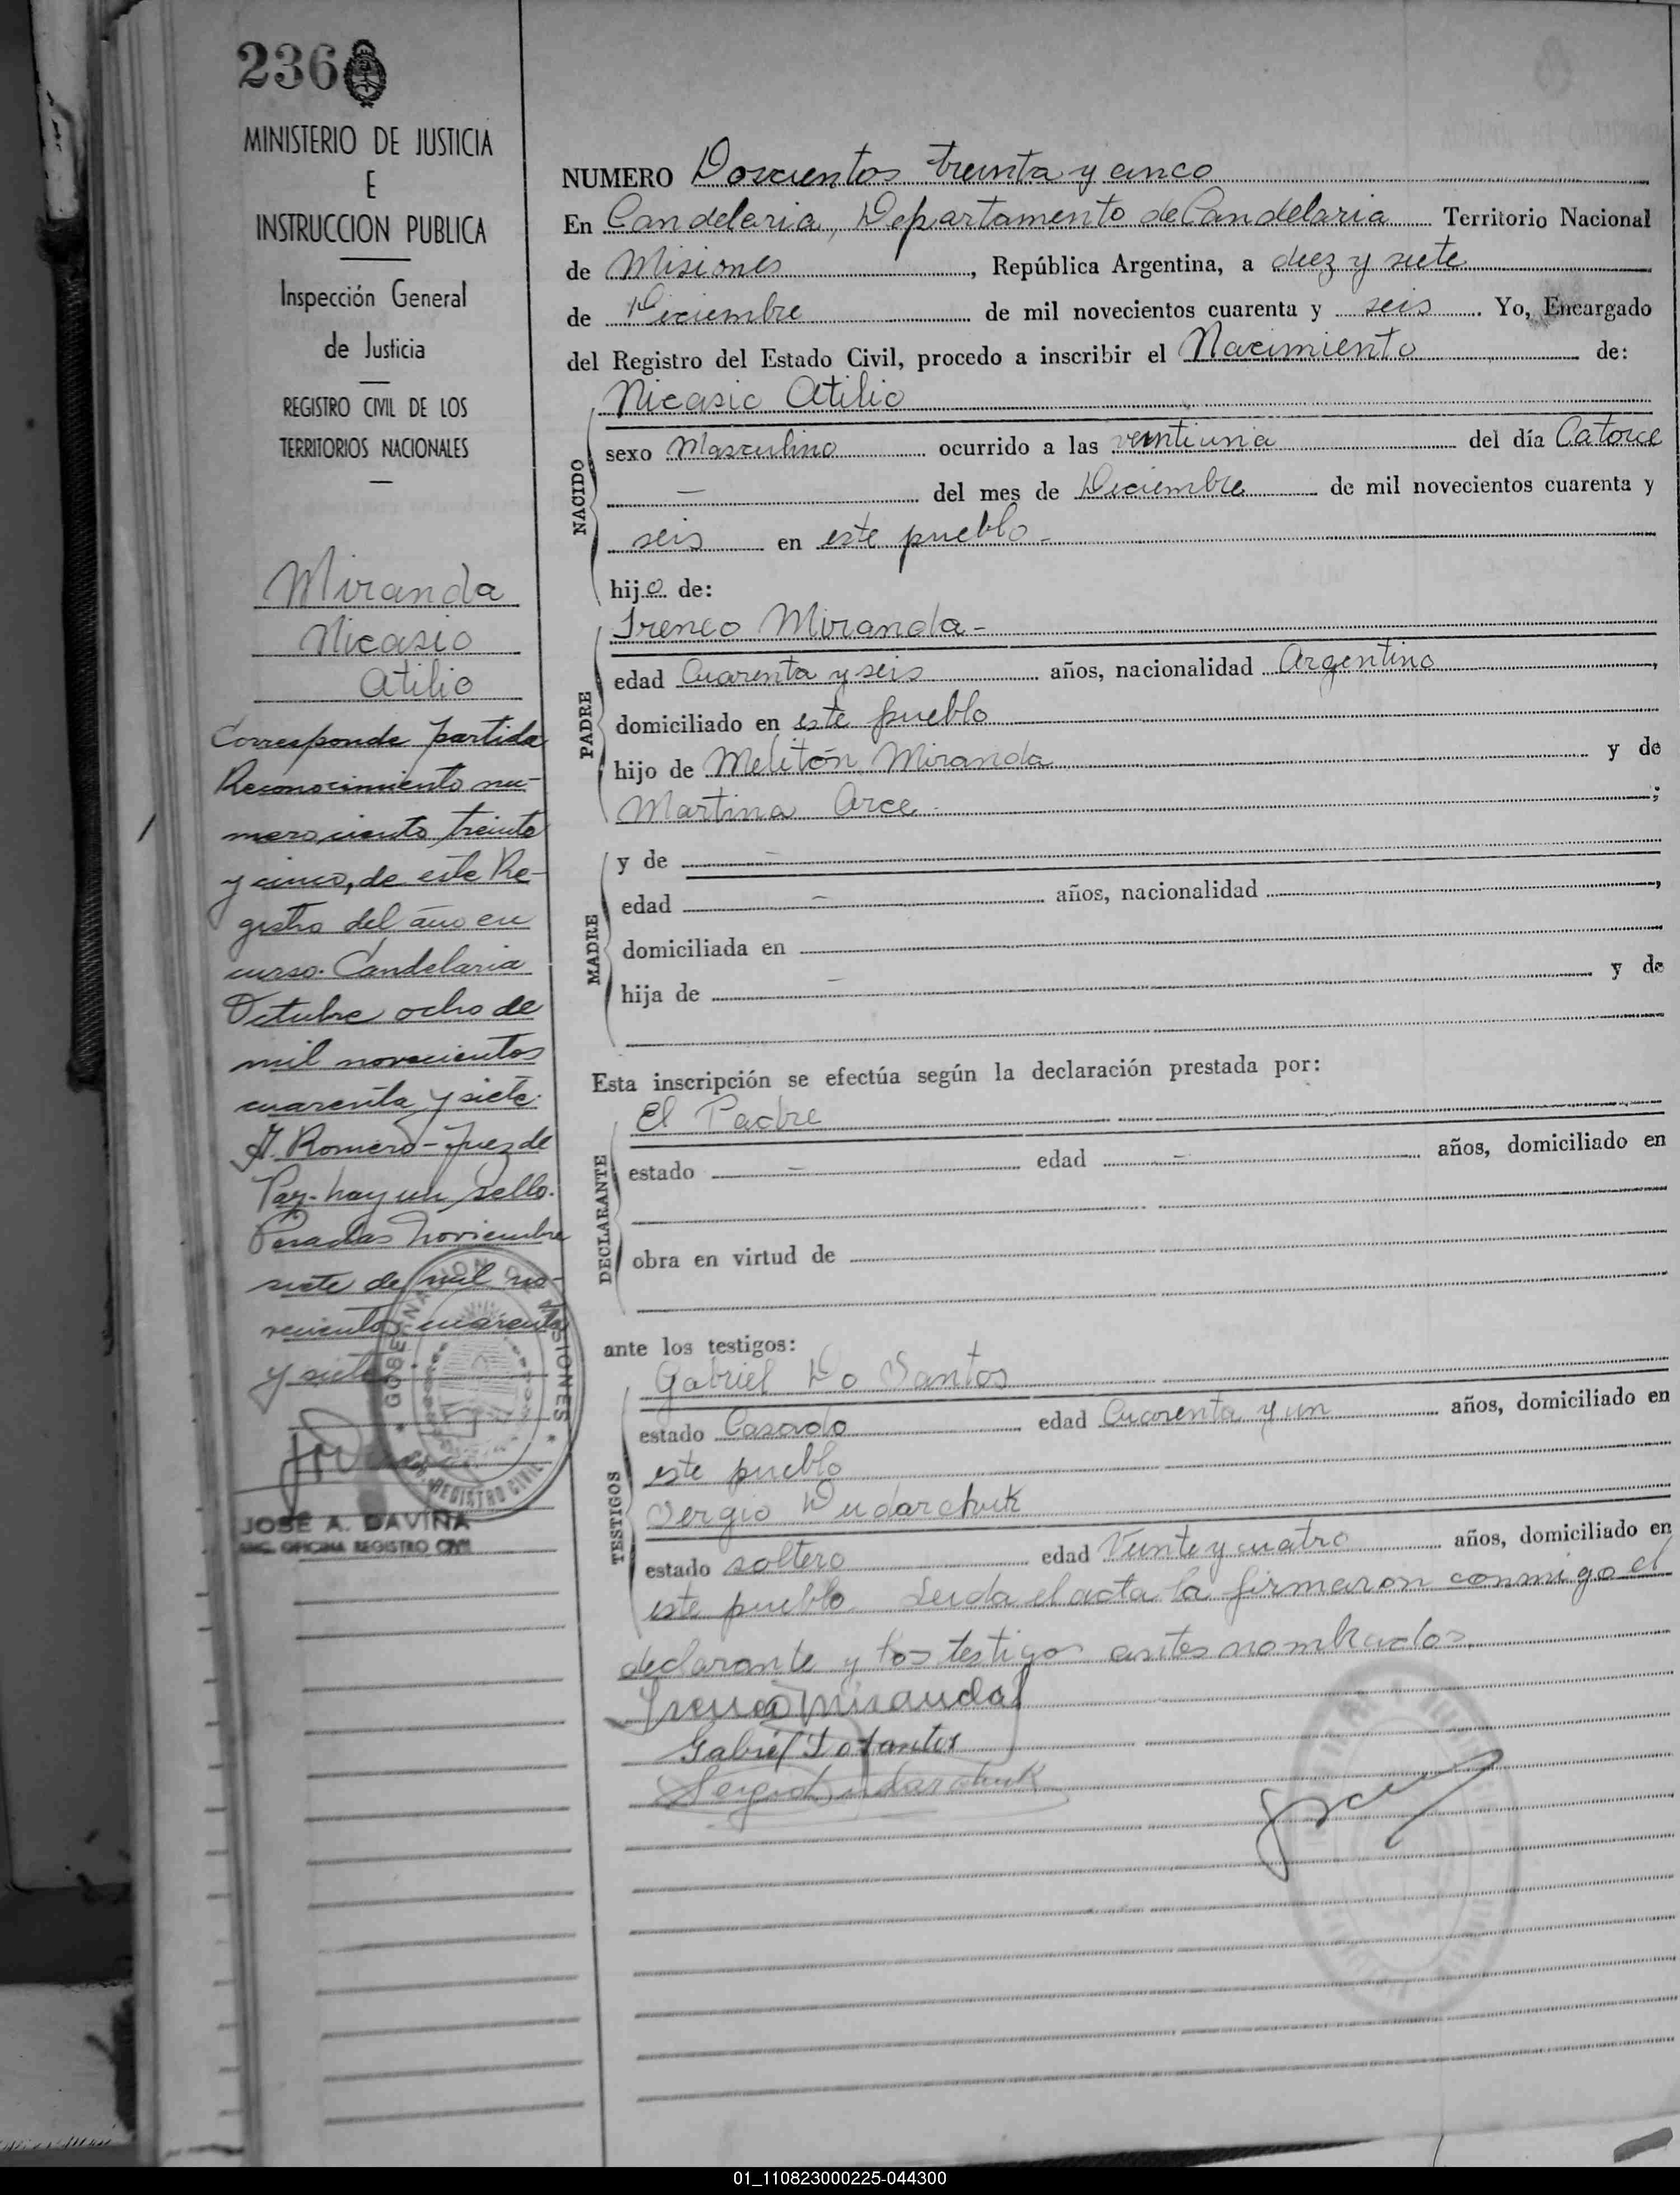 236
MINISTERIO DE JUSTICIA
E
INSTRUCCION PUBLICA
Inspección General
de Justicia
REGISTRO CIVIL DE LOS
TERRITORIOS NACIONALES
Miranda
Nicasio
Atilio
Corresponde partida
Reconocimiento nu-
mero ciento treinta
y cinco, de este Re-
gistro del año en
curso. Candelaria
Octubre ocho de
mil novecientos
cuarenta y siete.
Romero - Juez de
Paz - hay un sello.
Posadas Noviembre
siete de mil no-
vecientos cuarenta
y siete
GOBERNACION DE MISIONES
REGISTRO CIVIL
JOSE A. DAVIÑA
ENC. OFICINA REGISTRO CIVIL
NUMERO Doscientos treinta y cinco
En Candelaria, Departamento de Candelaria Territorio Nacional
de Misiones, República Argentina, a diez y siete
de Diciembre de mil novecientos cuarenta y seis. Yo, Encargado
del Registro del Estado Civil, procedo a inscribir el Nacimiento de:
NACIDO
Nicasio Atilio
sexo Masculino ocurrido a las veintiuna del día Catorce
— del mes de Diciembre de mil novecientos cuarenta y
seis en este pueblo -
hijo de:
PADRE
Ireneo Miranda -
edad Cuarenta y seis años, nacionalidad Argentino,
domiciliado en este pueblo
hijo de Melitón Miranda y de
Martina Arce ;
MADRE
y de —
edad — años, nacionalidad ,
domiciliada en
hija de — y de
Esta inscripción se efectúa según la declaración prestada por:
DECLARANTE
El Padre
estado — edad — años, domiciliado en
obra en virtud de
ante los testigos:
TESTIGOS
Gabriel Do Santos
estado Casado edad Cuarenta y un años, domiciliado en
este pueblo
Sergio Dudarchuk
estado soltero edad Veinte y cuatro años, domiciliado en
este pueblo. Leida el acta la firmaron conmigo el
declarante y los testigos antes nombrados.
Ireneo Miranda
Gabriel Do Santos
Sergio Dudarchuk
01_110823000225-044300